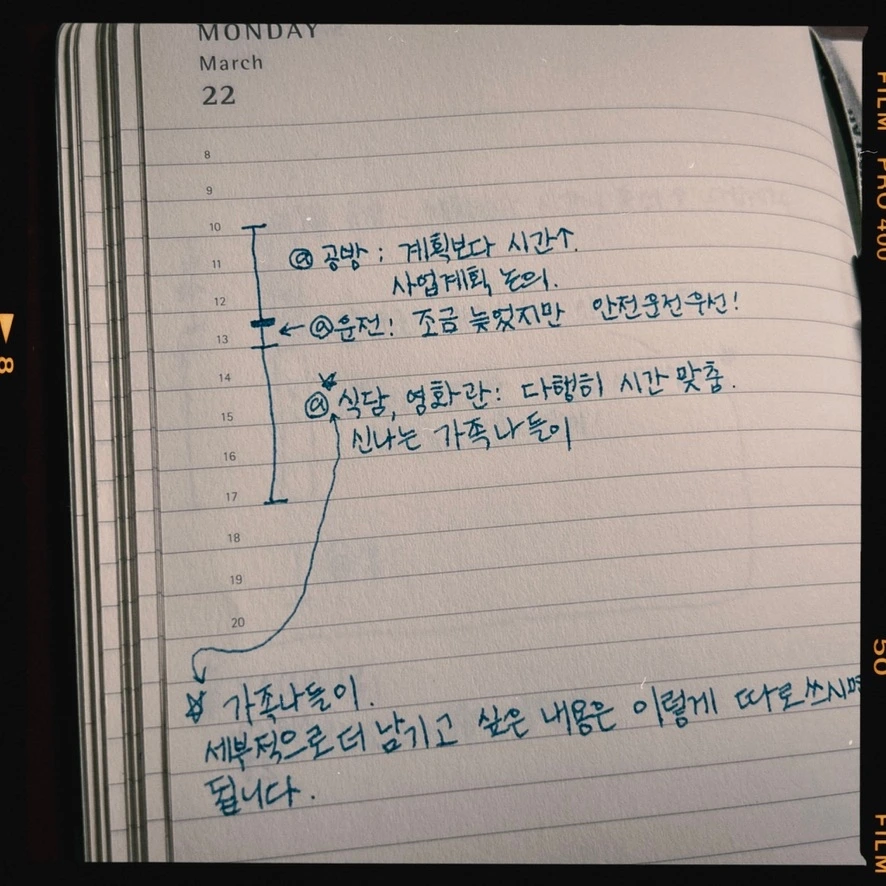 MONDAY
March
22
8
9
10
11
12
13
14
15
16
17
18
19
20
@ 공방 : 계획보다 시간↑.
사업계획 논의.
← @운전! 조금 늦었지만 안전운전우선!
@ 식당, 영화관 : 다행히 시간 맞춤.
신나는 가족나들이
☆ 가족나들이.
세부적으로 더 남기고 싶은 내용은 이렇게 따로쓰시면
됩니다.
FILM PRO 400
50
FILM
8